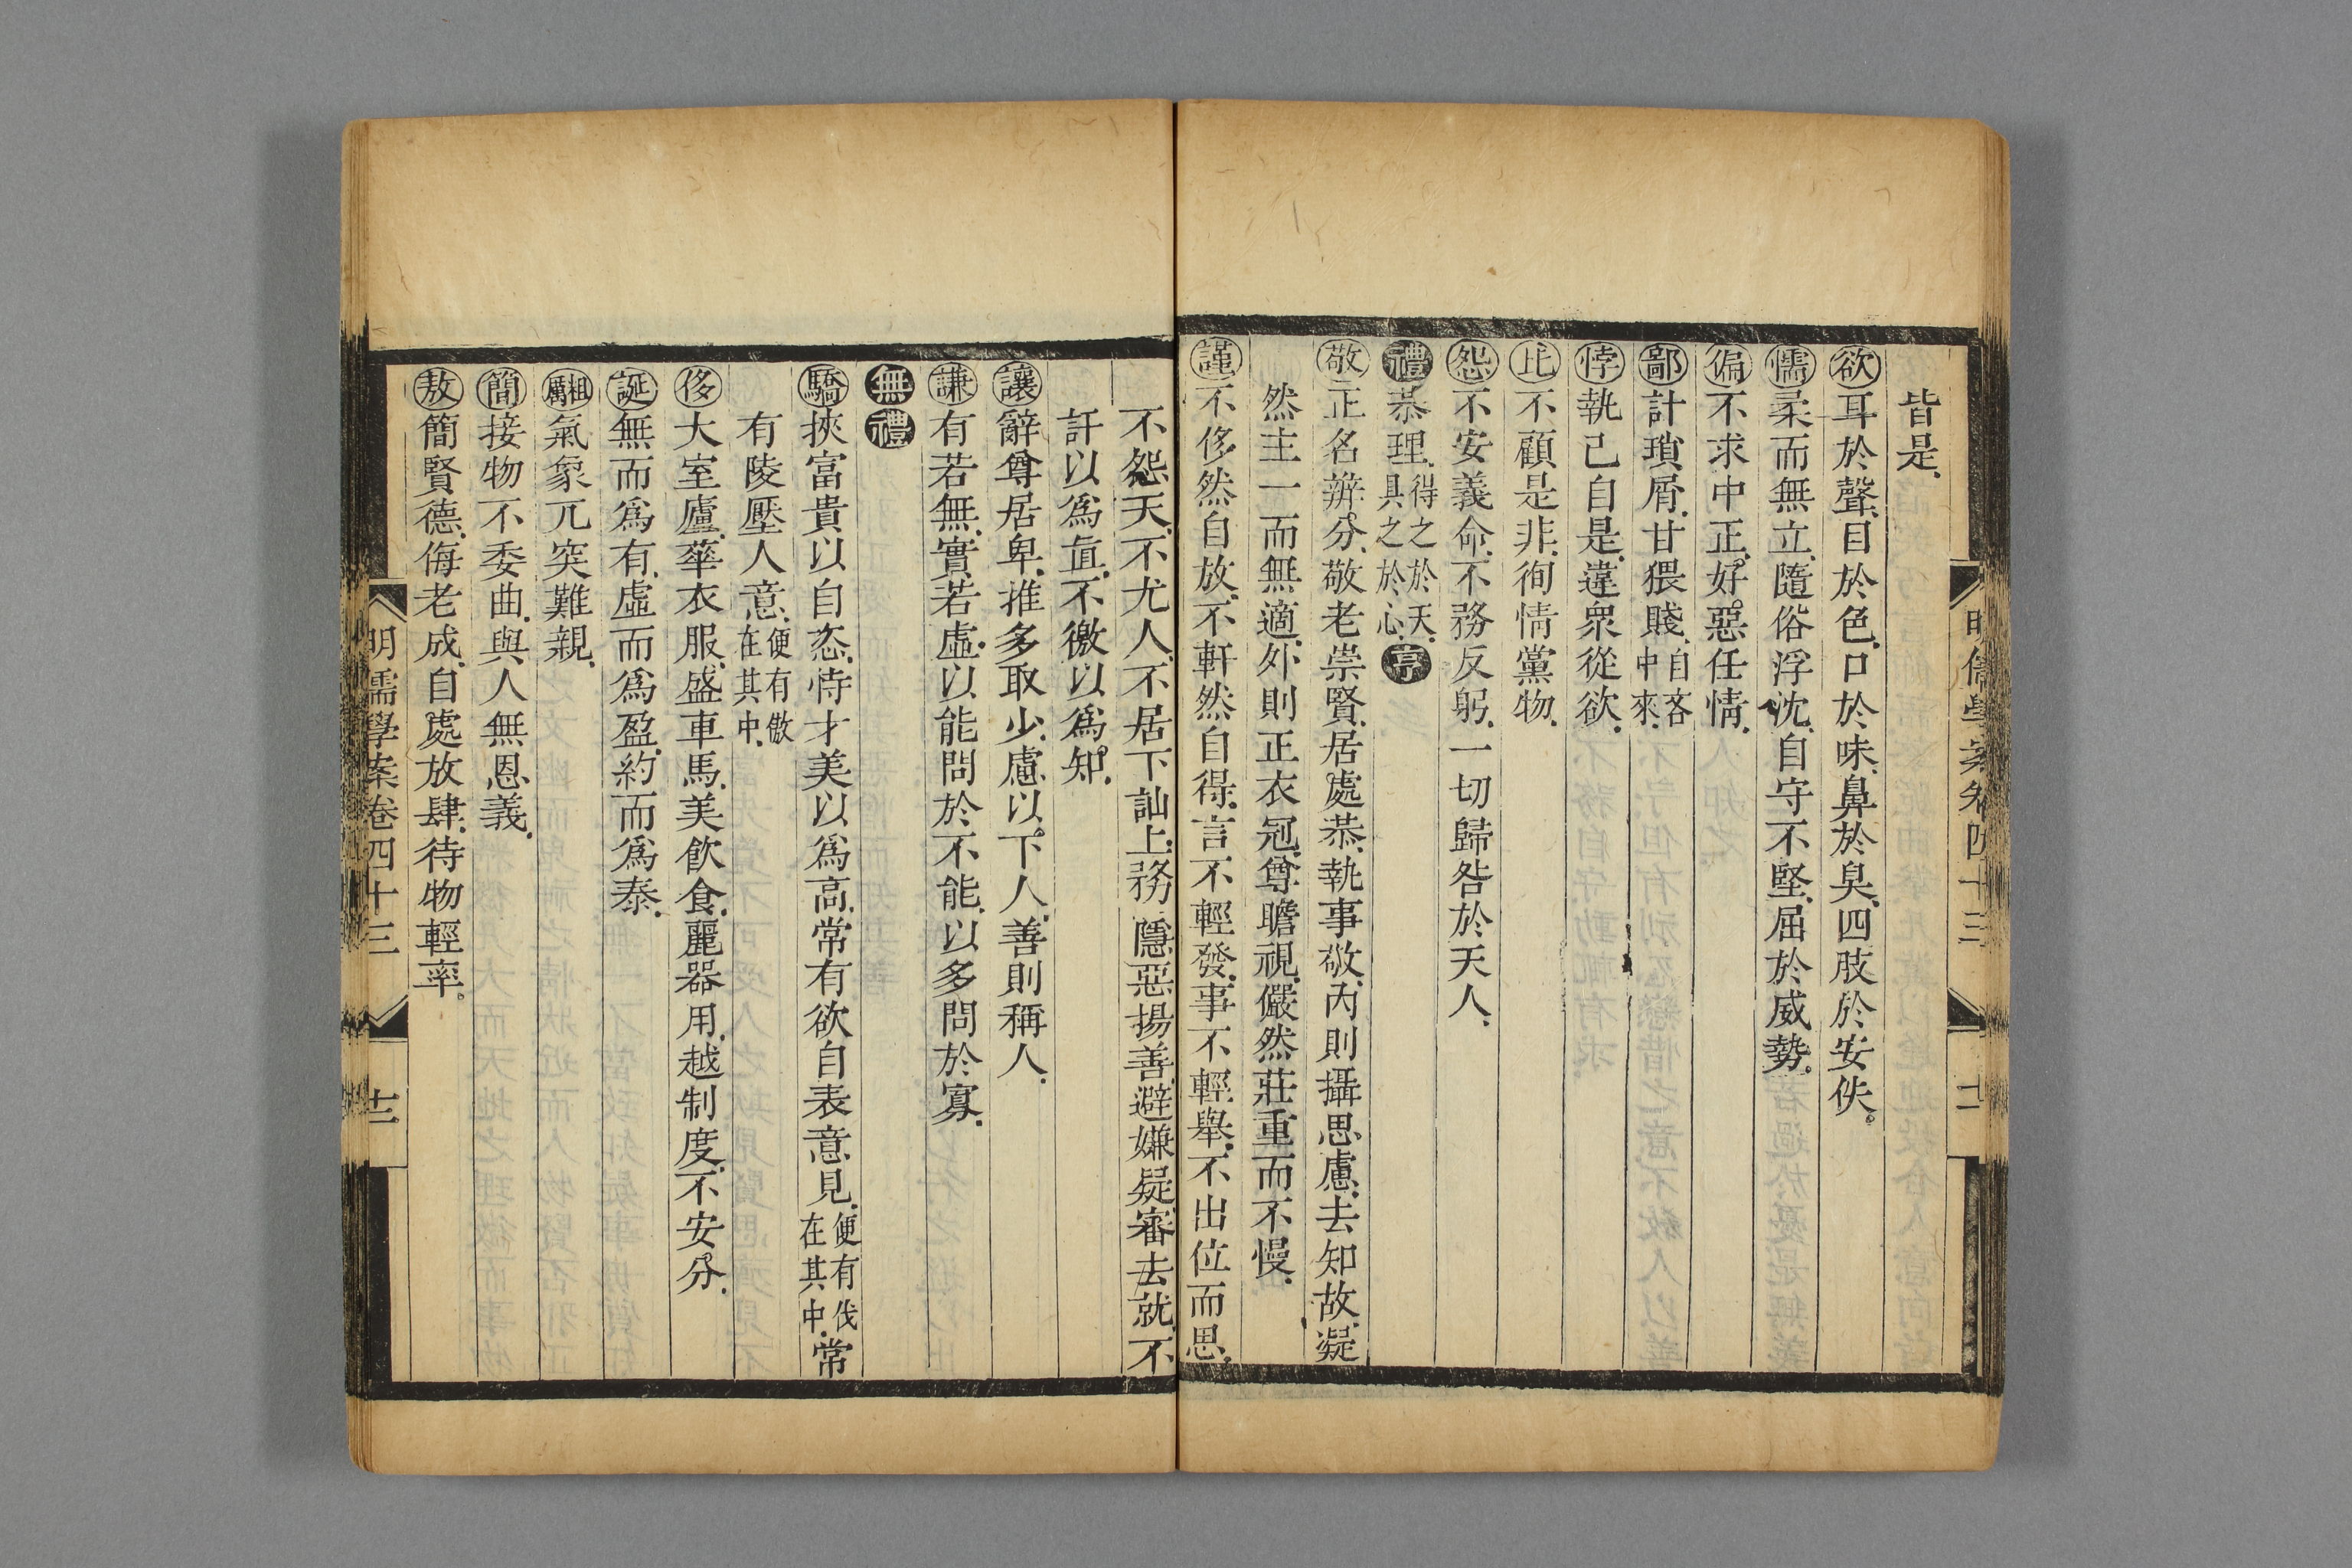 皆是
欲耳於聲目於色口於味鼻於臭四肢於安佚
懦柔而無立隨俗浮沈自守不堅屈於威勢
偏不求中正好惡任情
鄙計瑣屑甘猥賤自吝中來
悖執己自是違衆從欲
比不顧是非徇情黨物
怨不安義命不務反躬一切歸咎於天人
禮恭理得之於天具之於心亨
敬正名辨分敬老崇賢居處恭執事敬內則攝思慮去知故凝
然主一而無適外則正衣冠尊瞻視儼然莊重而不慢
謹不侈然自放不軒然自得言不輕發事不輕舉不出位而思
不怨天不尤人不居下訕上務隱惡揚善避嫌疑審去就不
訐以爲直不徼以爲知
讓辭尊居卑推多取少慮以下人善則稱人
謙有若無實若虛以能問於不能以多問於寡
無禮
驕挾富貴以自恣恃才美以爲高常有欲自表意見便有伐在其中常
有陵壓人意便有傲在其中
侈大室廬華衣服盛車馬美飲食麗器用越制度不安分
誕無而爲有虛而爲盈約而爲泰
粗厲氣象兀突難親
簡接物不委曲與人無恩義
敖簡賢德侮老成自處放肆待物輕率
明儒學案卷四十三
十二